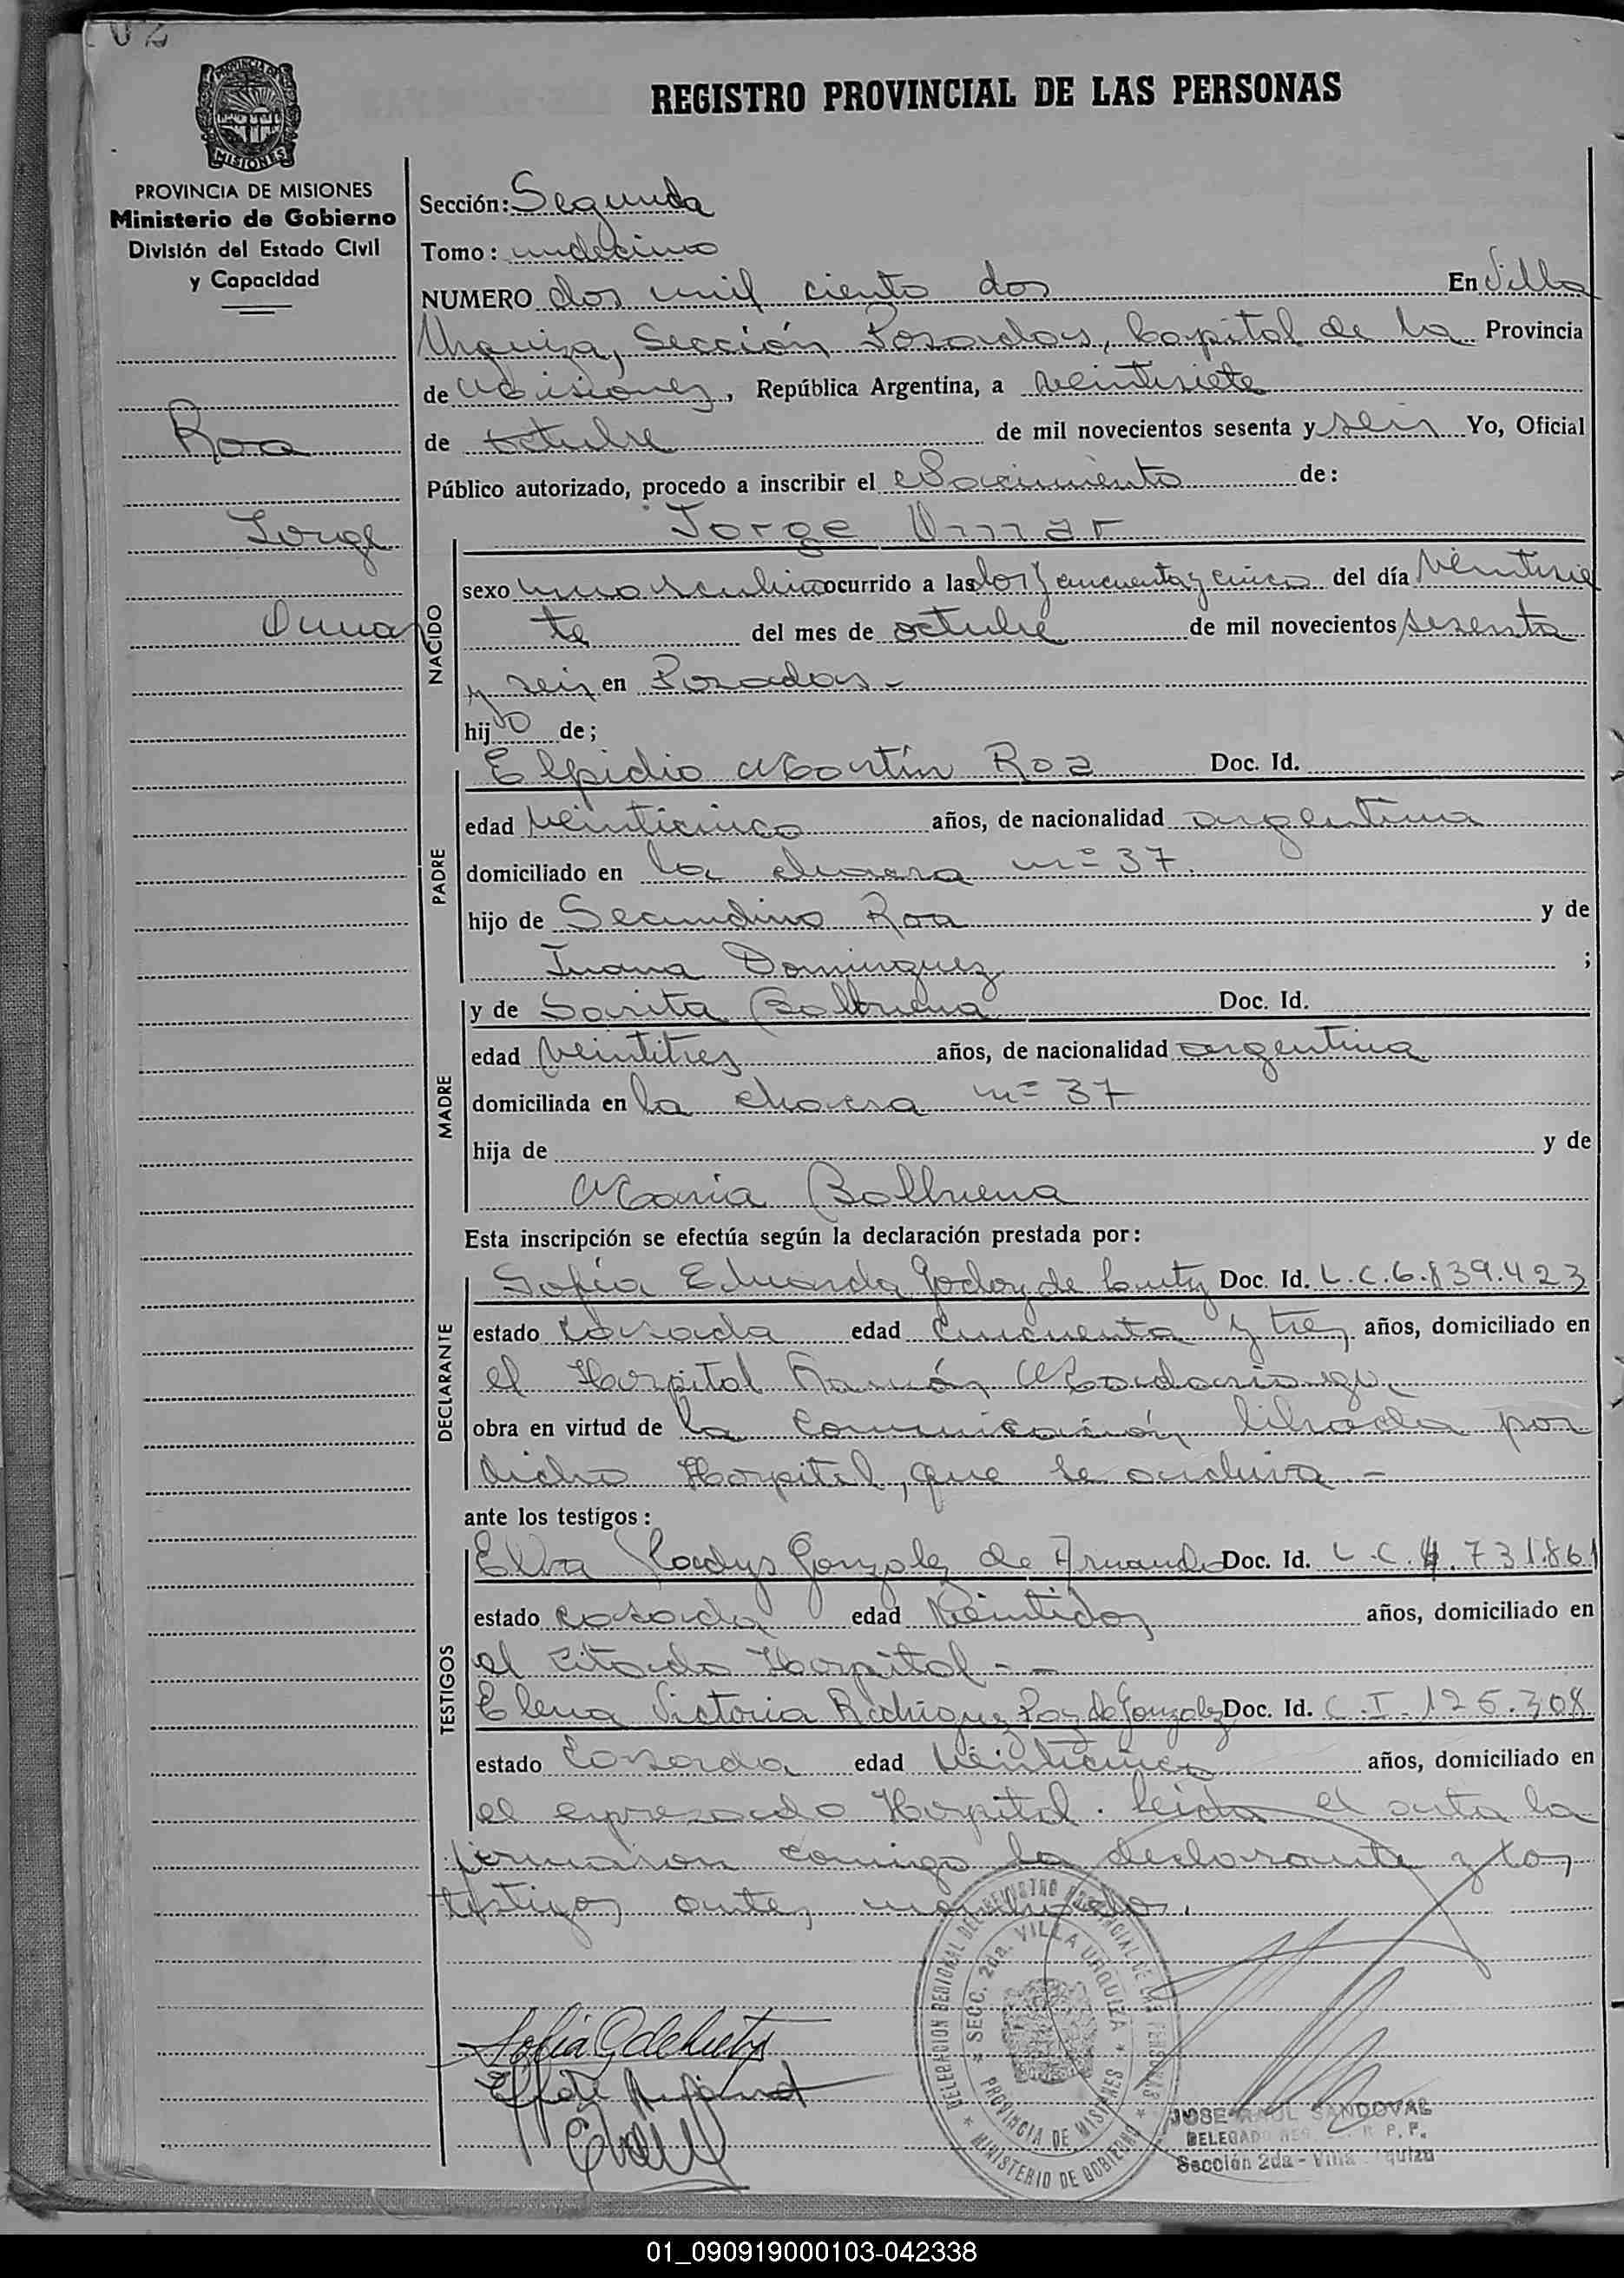 02
REGISTRO PROVINCIAL DE LAS PERSONAS
PROVINCIA DE
MISIONES
PROVINCIA DE MISIONES
Ministerio de Gobierno
División del Estado Civil
y Capacidad
Roa
Jorge
Omar
Sección: Segunda
Tomo: undécimo
NUMERO dos mil ciento dos En Villa
Urquiza, Sección Posadas, Capital de la Provincia
de Misiones, República Argentina, a veintisiete
de octubre de mil novecientos sesenta y seis Yo, Oficial
Público autorizado, procedo a inscribir el Nacimiento de:
Jorge Omar
NACIDO
sexo masculino ocurrido a las dos y cincuenta y cinco del día veintisie
te del mes de octubre de mil novecientos sesenta
y seis en Posadas.-
hijo de;
PADRE
Elpidio Martín Roa Doc. Id.
edad veinticinco años, de nacionalidad argentina
domiciliado en la chacra nº 37.
hijo de Secundino Roa y de
Juana Dominguez ;
MADRE
y de Sarita Balbuena Doc. Id.
edad veintitres años, de nacionalidad argentina
domiciliada en la chacra nº 37
hija de y de
Maria Balbuena
Esta inscripción se efectúa según la declaración prestada por:
DECLARANTE
Sofía Eduarda Godoy de Doc. Id. L.C.6.839.423
estado casada edad cincuenta y tres años, domiciliado en
el Hospital Ramón Madariaga,
obra en virtud de la comunicación librada por
dicho Hospital, que se archiva.-
ante los testigos:
TESTIGOS
Elba Gladys Gonzalez de Doc. Id. L.C.4.731.861
estado casada edad veintidos años, domiciliado en
el citado Hospital.-
Elena Victoria Rodriguez de Gonzalez Doc. Id. C.I. 125.308
estado casada edad veinticinco años, domiciliado en
el expresado Hospital. Leida el acta la
firmaron conmigo la declarante y los
testigos antes
DELEGACION REGIONAL DEL REGISTRO PROVINCIAL DE LAS PERSONAS
SECC. 2da. VILLA URQUIZA
PROVINCIA DE MISIONES
MINISTERIO DE GOBIERNO
JOSE RAUL SANDOVAL
Sección 2da - Villa Urquiza
01_090919000103-042338